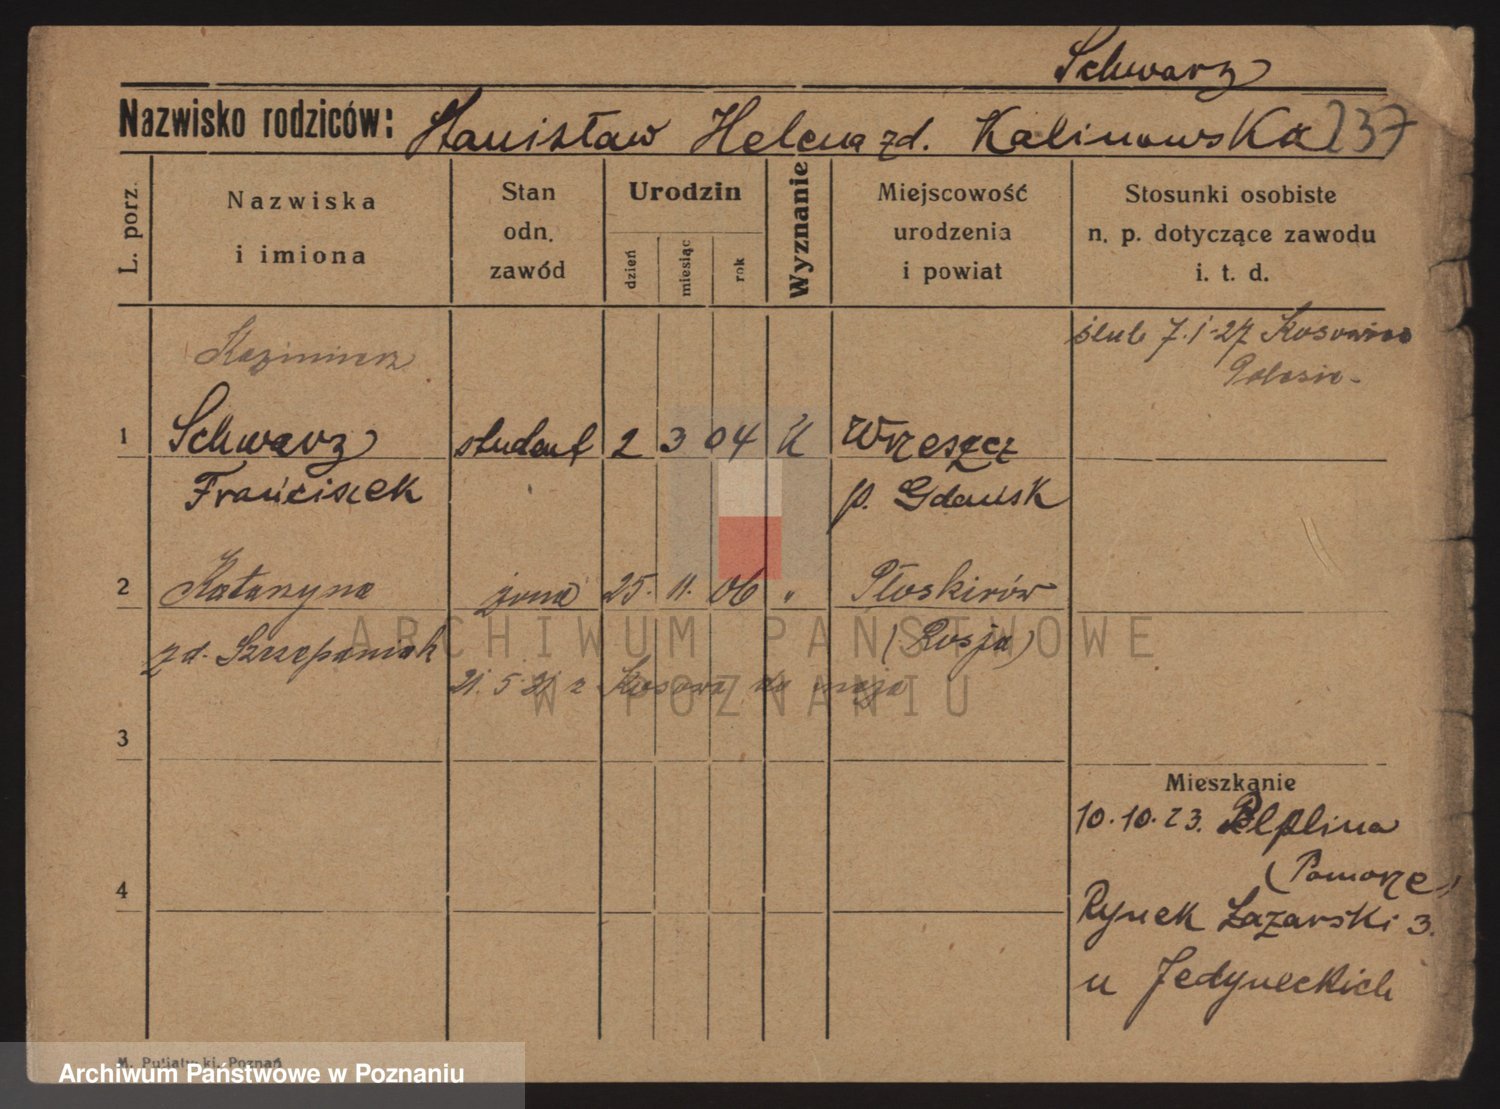 Schwarz
Nazwisko rodziców: Stanisław Helena zd. Kalinowska 237
L. porz.
Nazwiska
i imiona
Stan
odn.
zawód
Urodzin
dzień
miesiąc
rok
Wyznanie
Miejscowość
urodzenia
i powiat
Stosunki osobiste
n. p. dotyczące zawodu
i. t. d.
Kazimierz
ślub 7.1-27
1 Schwarz student 2 3 04 K Wrzeszcz
Franciszek p. Gdańsk
2 Katarzyna żona 25. 11. 06 " Płoskirów
zd. Szczepaniak (Rosja)
z Kosowa
3
Mieszkanie
10.10.23. Pelplina
(Pomorze)
4
Rynek Łazarski 3.
u Jedyneckich
M. Putiatycki, Poznań
ARCHIWUM PAŃSTWOWE
W POZNANIU
Archiwum Państwowe w Poznaniu